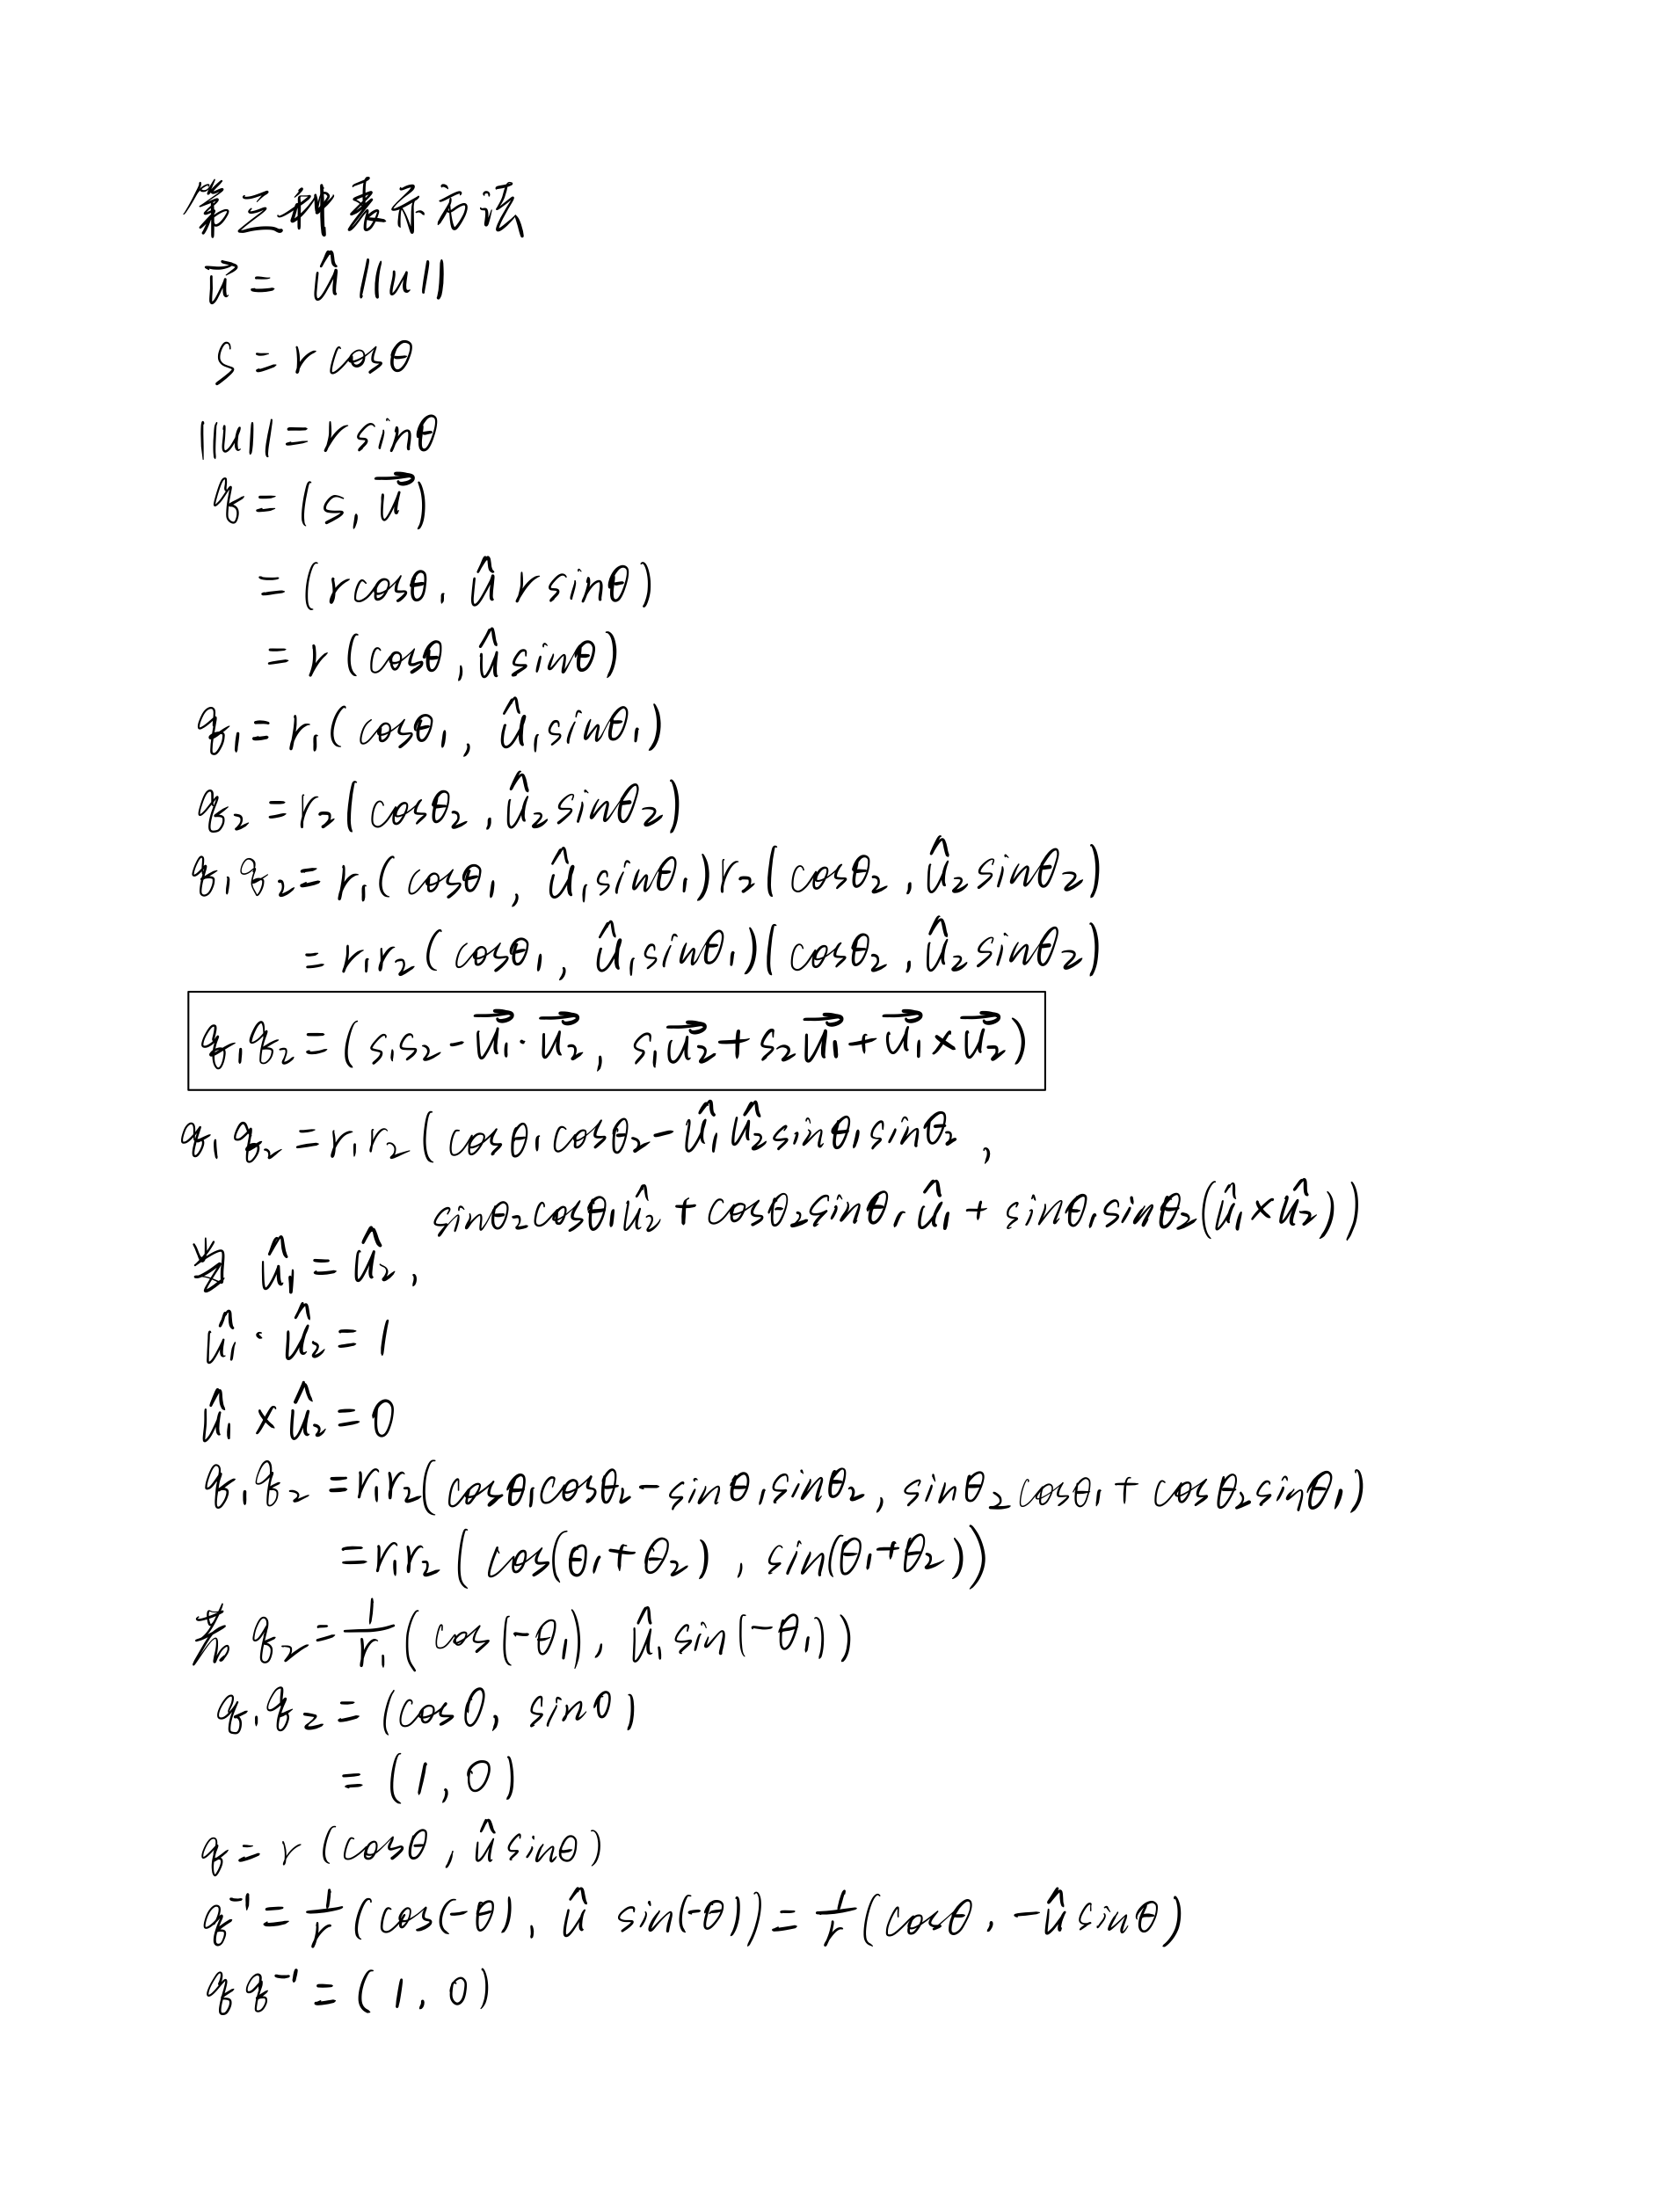 第三种表示方法
u⃗ = û ||u||
s = r cosθ
||u|| = r sinθ
q = (s, u⃗)
= (r cosθ, û r sinθ)
= r (cosθ, û sinθ)
q₁ = r₁( cosθ₁, û₁sinθ₁)
q₂ = r₂( cosθ₂, û₂ sinθ₂)
q₁q₂ = r₁( cosθ₁, û₁sinθ₁) r₂( cosθ₂, û₂ sinθ₂)
= r₁r₂ ( cosθ₁, û₁sinθ₁)( cosθ₂, û₂ sinθ₂)
q₁q₂ = ( s₁s₂ - u⃗₁ · u⃗₂, s₁u⃗₂ + s₂u⃗₁ + u⃗₁ × u⃗₂ )
q₁ q₂ = r₁ r₂ ( cosθ₁ cosθ₂ - û₁ û₂ sinθ₁ sinθ₂ ,
sinθ₂ cosθ₁ û₂ + cosθ₂ sinθ₁ û₁ + sinθ₁ sinθ₂ (û₁ × û₂) )
当 û₁ = û₂ ,
û₁ · û₂ = 1
û₁ × û₂ = 0
q₁q₂ = r₁r₂( cosθ₁cosθ₂ - sinθ₁sinθ₂ , sinθ₂ cosθ₁ + cosθ₂sinθ₁ )
= r₁r₂ ( cos(θ₁+θ₂) , sin(θ₁+θ₂) )
若 q₂ = 1/r₁ ( cos(-θ₁), û₁ sin(-θ₁) )
q₁q₂ = (cos0, sin0)
= (1, 0)
q = r (cosθ, û sinθ)
q⁻¹ = 1/r (cos(-θ), û sin(-θ)) = 1/r (cosθ, -û sinθ)
q q⁻¹ = (1, 0)